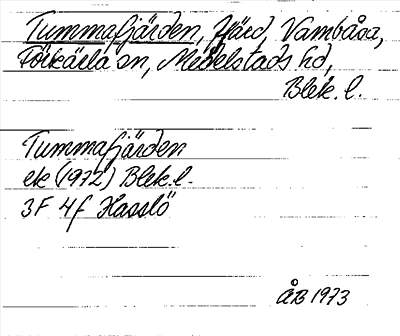 Tummafjärden, fjärd, Vambåsa,
Förkärla sn, Medelstads hd,
Blek. l.
Tummafjärden
ek (1972) Blek. l.
3F 4f Hasslö
ÅB 1973